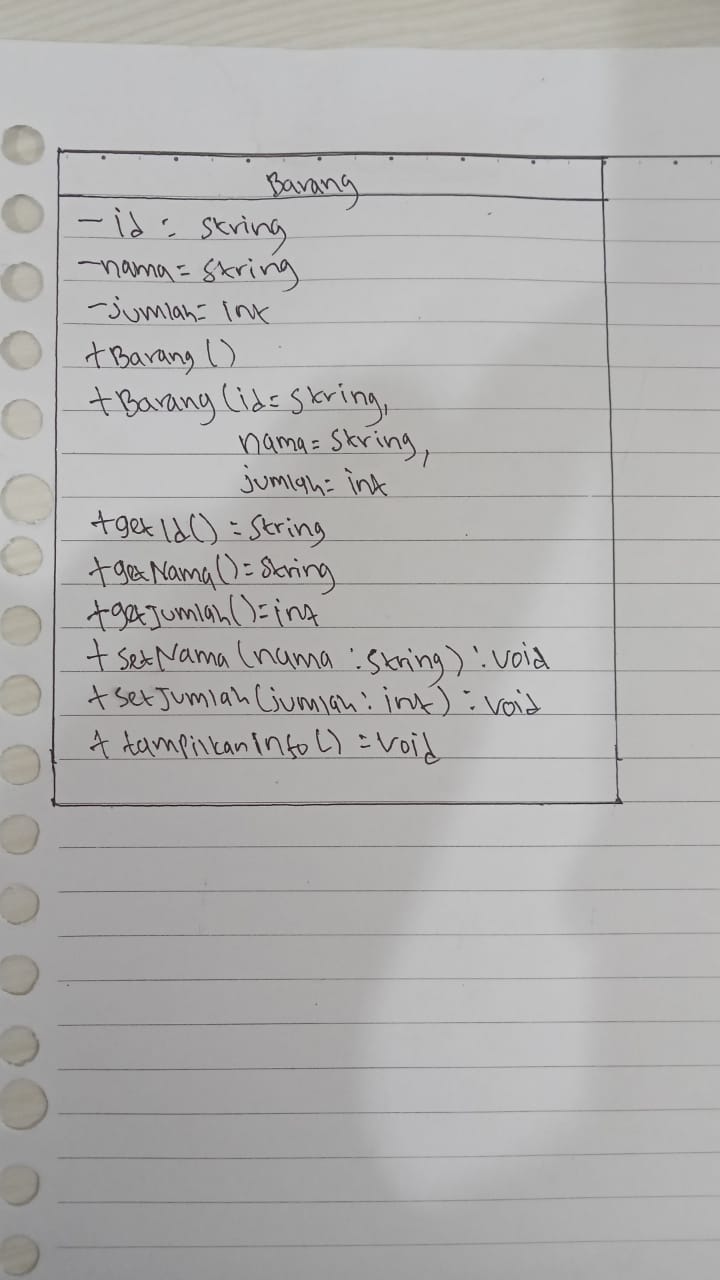 Barang
- id : string
- nama = string
- jumlah = int
+ Barang ()
+ Barang (id = string,
nama = string,
jumlah = int
+ getId() = String
+ getNama() = String
+ getJumlah() = int
+ setNama (nama : string) : void
+ setJumlah (jumlah : int) : void
+ tampilkanInfo () = void